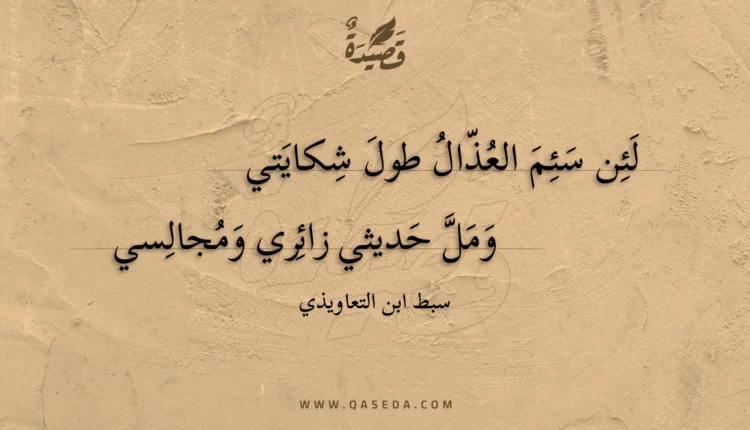 قَصِيدَةٌ
لَئِن سَئِمَ العُذّالُ طولَ شِكايَتي
وَمَلَّ حَديثي زائِري وَمُجالِسي
سبط ابن التعاويذي
WWW.QASEDA.COM